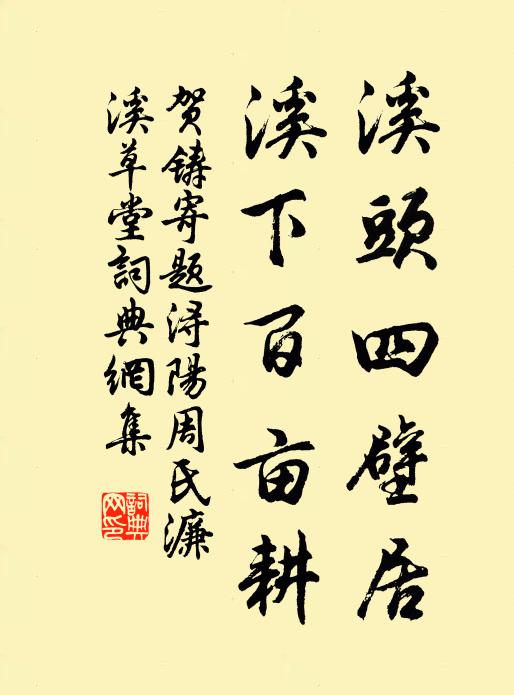 溪頭四壁居
溪下百亩耕
贺鑄寄题浔陽周氏濂
溪草堂詞典網集
詞典网印